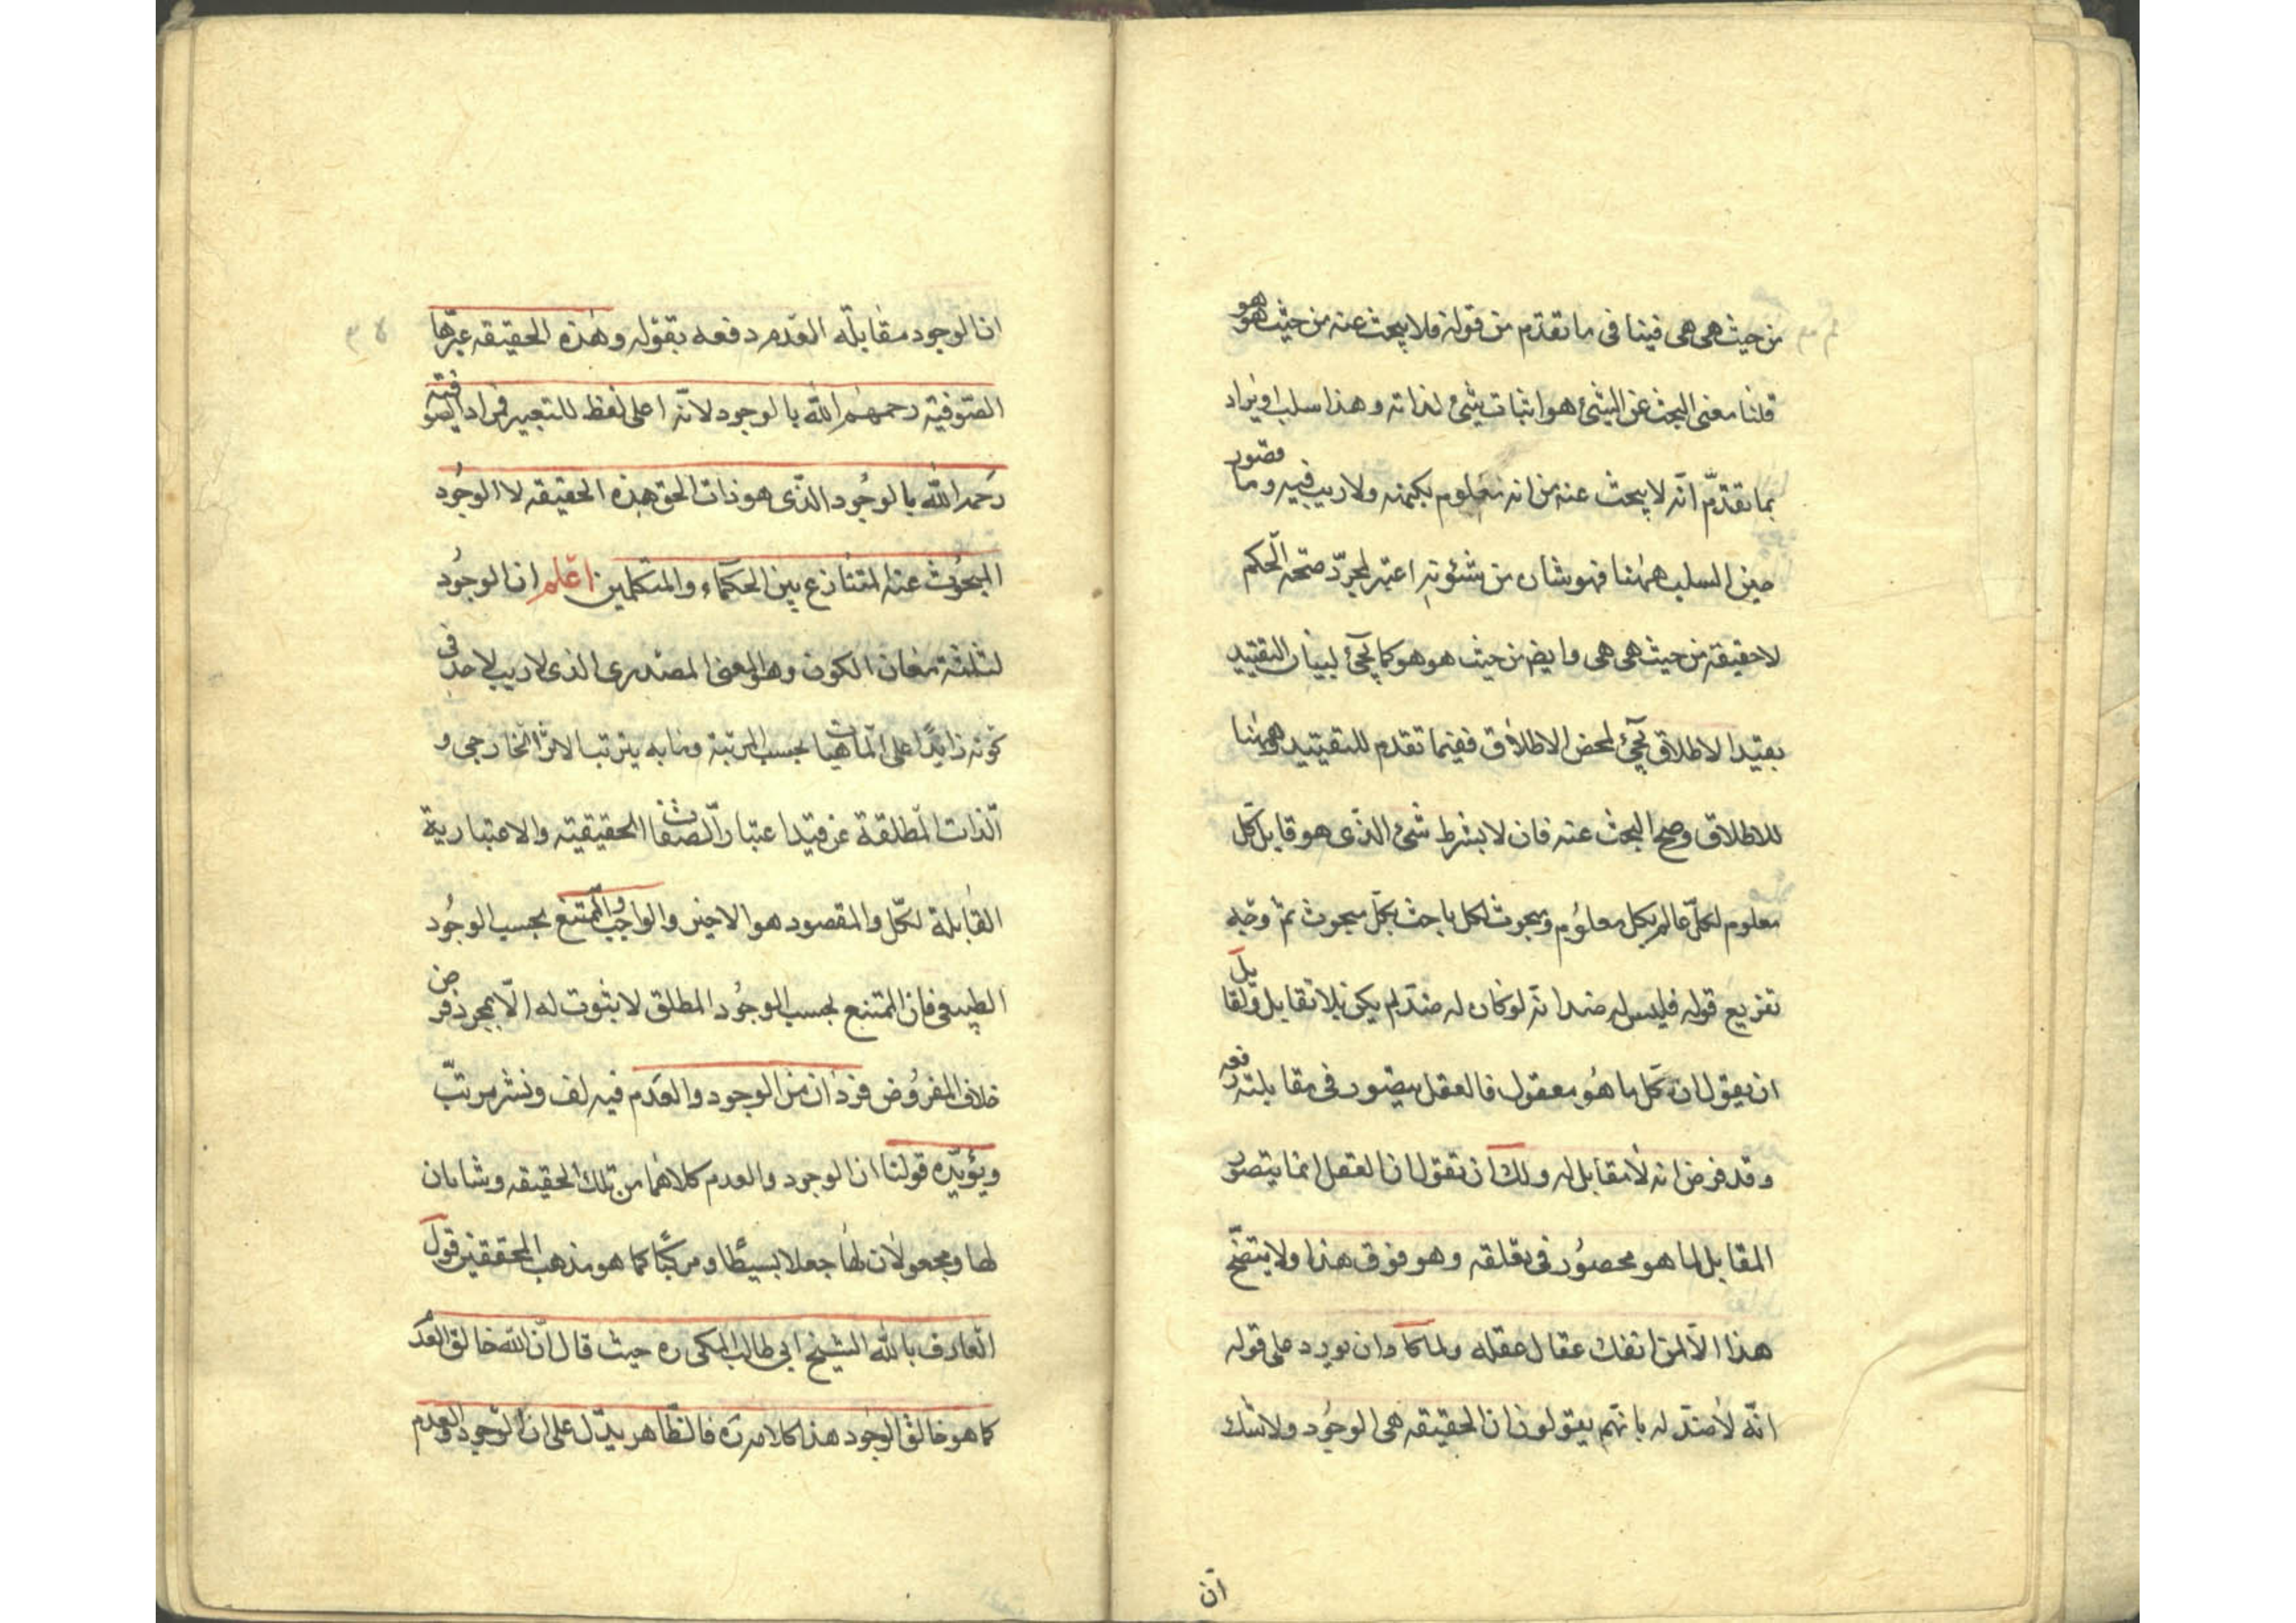 من حيث هى هى فينا فى ما تقدّم من قوله فلا يبحث عنه من حيث هو هو
قلنا معنى البحث عن الشئ هو اثبات شئ لذاته و هذا سلب او يراد
بما تقدّم انّه لا يبحث عنه من انه معلوم بكنهه ولا ريب فيه و ما
حين السلب ههنا فهو شان من شئونه اعتبر لمجرّد صحّة الحكم
لا حقيقة من حيث هى هى و ايضا من حيث هو هو كما يجئ لبيان التقييد
بقيد الاطلاق يجئ لمحض الاطلاق ففيما تقدم للتقييد و ههنا
للاطلاق و صح البحث عنه فان لا بشرط شئ الذّى هو قابل كل
معلوم لكلّ عالم بكل معلوم و مبحوث لكل باحث بكل مبحوث ثم وجه
تفريع قوله فليس له ضد انّه لو كان له ضدّ لم يكن بلا تقابل و لقايل
ان يقول ان كل ما هو معقول فالعقل يتصور فى مقابلته رفعه
و قد فرض انه لا مقابل له و لك ان تقول ان العقل انما يتصور
المقابل لما هو محصور فى تعلقه و هو فوق هذا ولا يتضح
هذا الّا لمن انفك عقال عقله ولما كاد ان يورد على قوله
انّه لا ضدّ له بانهم يقولون ان الحقيقة هى الوجود ولا شك
ان
ان الوجود مقابله العدم دفعه بقوله و هذه الحقيقه عبّرها
الصّوفيّه رحمهم الله بالوجود لانّه اعلى لفظ للتعبير فمراد الصوفيّه
رحمهم الله بالوجود الذّى هو ذات الحق هذه الحقيقه لا الوجود
المبحوث عنه المتنازع بين الحكماء والمتكلمين اعلم ان الوجود
لثلثة معان الكون و هو المعنى المصدرى الذى لا ريب لاحد فى
كونه زايدًا على الماهيات بحسب المرتبة و ما به يترتب الاثر الخارجى و
الذّات المطلقة عن قيد اعتبار الصّفات الحقيقيّه والاعتبارية
القابلة لكل والمقصود هو الاخير والواجب والممتنع بحسب الوجود
الطبيعى فان الممتنع بحسب الوجود المطلق لا ثبوت له الّا بمجرد فرض
خلاف المفروض فردان من الوجود والعدم فيه لف و نشر مرتّب
و يؤيّده قولنا ان الوجود والعدم كلاهما من تلك الحقيقه و شانان
لها و مجعولان لها جعلا بسيطا و مركبًا كما هو مذهب المحققين قول
العارف بالله الشيخ ابى طالب المكى ره حيث قال انّ الله خالق العدم
كما هو خالق الوجود هذا كلامه ره فالظّاهر يدّل على ان الوجود والعدم